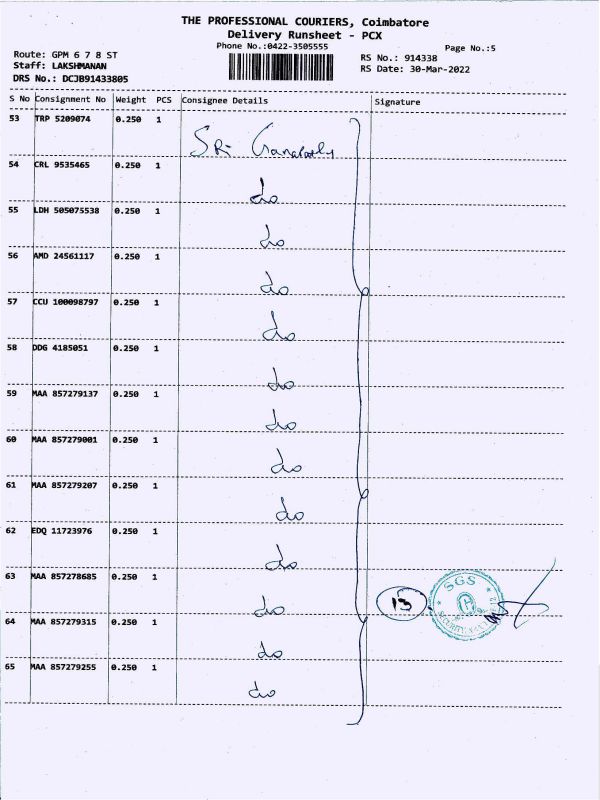 THE PROFESSIONAL COURIERS, Coimbatore
Delivery Runsheet - PCX
Phone No.:0422-3505555
Page No.:5
Route: GPM 6 7 8 ST
Staff: LAKSHMANAN
DRS No.: DCJB91433805
RS No.: 914338
RS Date: 30-Mar-2022
S No Consignment No Weight PCS Consignee Details Signature
53 TRP 5209074 0.250 1
Sri Ganapathy
54 CRL 9535465 0.250 1
do
55 LDH 505075538 0.250 1
do
56 AMD 24561117 0.250 1
do
57 CCU 100098797 0.250 1
do
58 DDG 4185051 0.250 1
do
59 MAA 857279137 0.250 1
do
60 MAA 857279001 0.250 1
do
61 MAA 857279207 0.250 1
do
62 EDQ 11723976 0.250 1
do
63 MAA 857278685 0.250 1
do
13
SGS
64 MAA 857279315 0.250 1
do
65 MAA 857279255 0.250 1
do